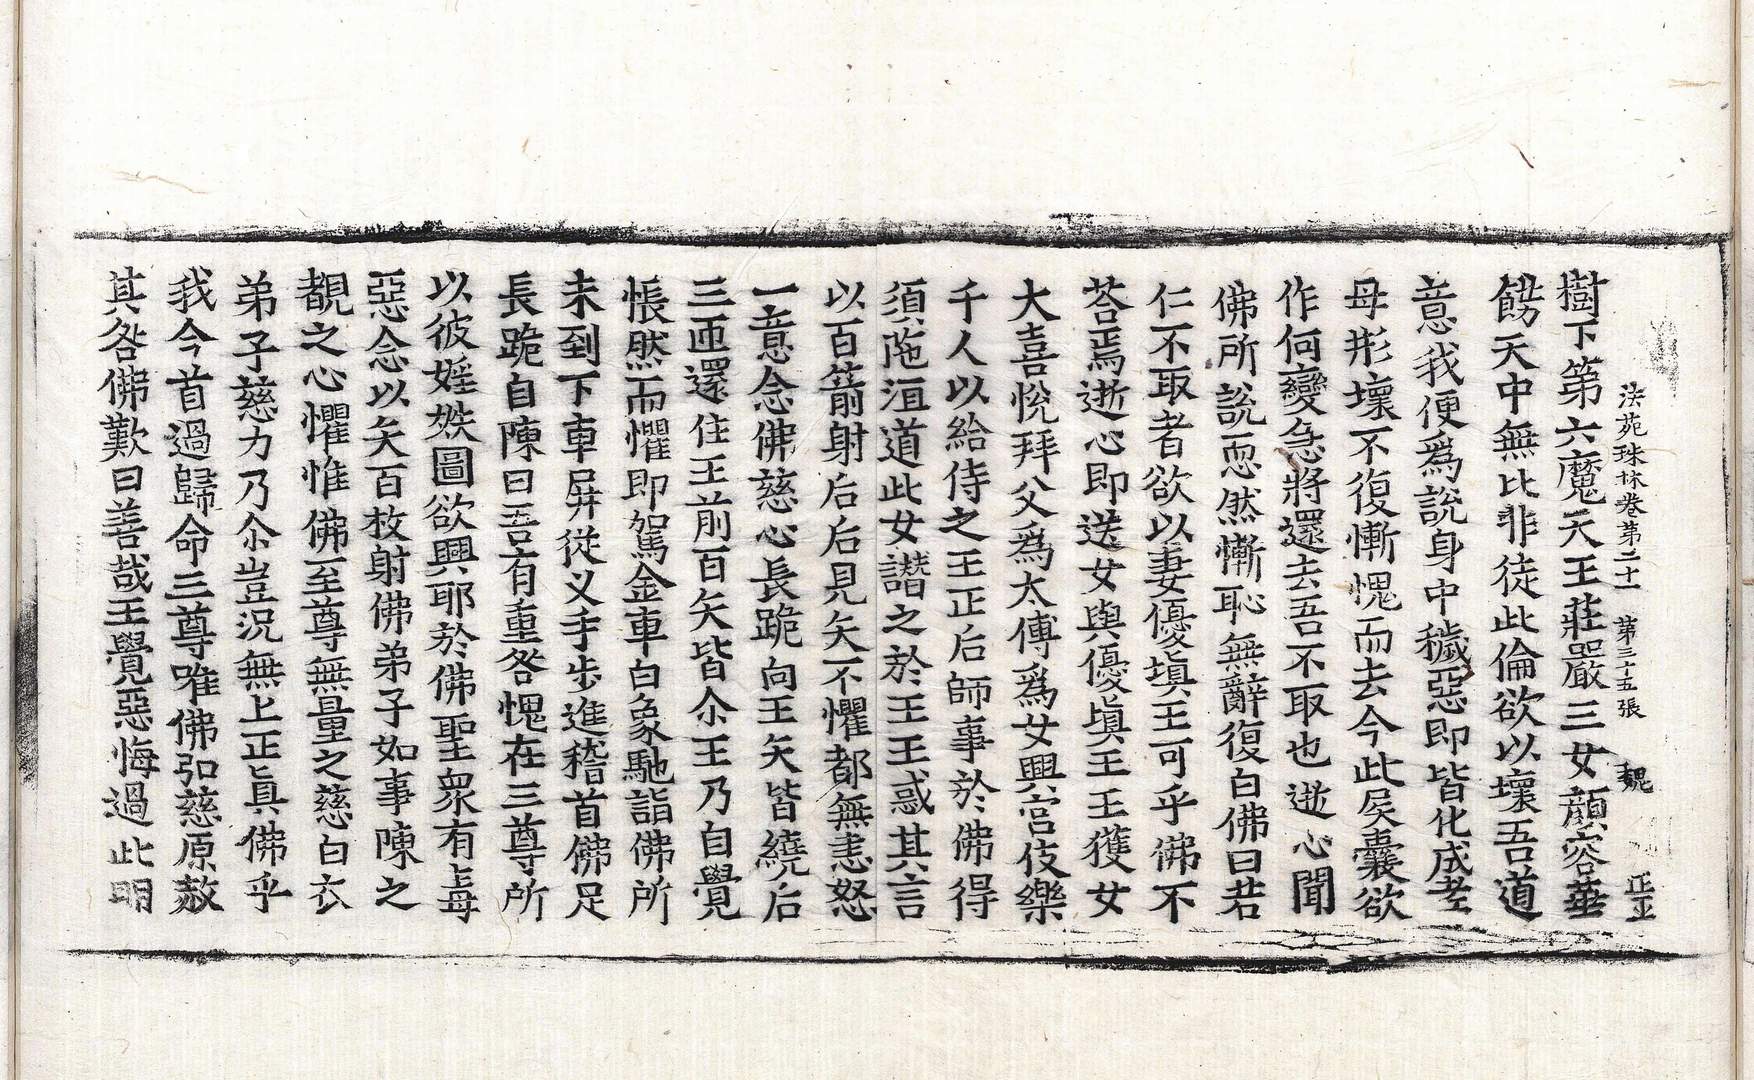 法苑珠林卷第二十一 第三十五張 魏
樹下第六魔天王莊嚴三女顏容華
餝天中無比非徒此倫欲以壞吾道
意我便爲說身中穢惡即皆化成老
母形壞不復慚愧而去今此屎囊欲
作何變急將還去吾不取也逝心聞
佛所說恧然慚恥無辭復白佛曰若
仁不取者欲以妻優塡王可乎佛不
荅焉逝心即送女與優塡王王獲女
大喜悅拜父爲太傅爲女興宮伎樂
千人以給侍之王正后師事於佛得
須陁洹道此女譖之於王王惑其言
以百箭射后后見矢不懼都無恚怒
一意念佛慈心長跪向王矢皆繞后
三匝還住王前百矢皆尒王乃自覺
悵然而懼即駕金車白象馳詣佛所
未到下車屏從叉手步進稽首佛足
長跪自陳曰吾有重咎愧在三尊所
以彼婬妷圖欲興耶於佛聖衆有毒
惡念以矢百枚射佛弟子如事陳之
覩之心懼惟佛至尊無量之慈白衣
弟子慈力乃尒豈況無上正眞佛乎
我今首過歸命三尊唯佛弘慈原赦
其咎佛歎曰善哉王覺惡悔過此明